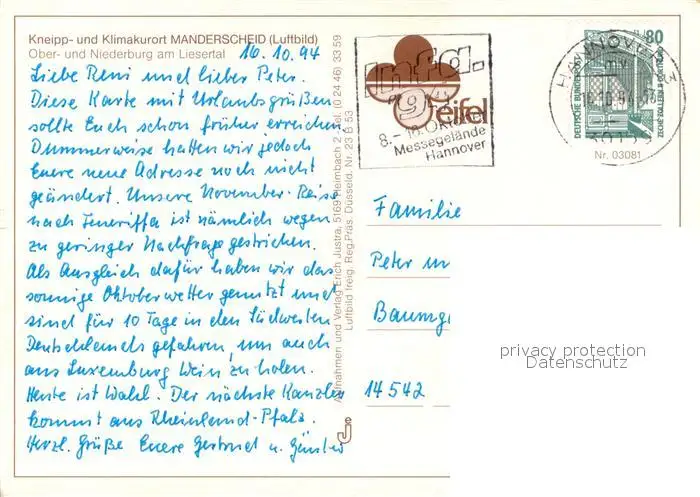 Kneipp- und Klimakurort MANDERSCHEID (Luftbild)
Ober- und Niederburg am Liesertal
16.10.94
Liebe Reni und lieber Peter.
Diese Karte mit Urlaubsgrüßen
sollte Euch schon früher erreichen
Dummerweise hatten wir jedoch
Euere neue Adresse noch nicht
geändert. Unsere November-Reise
nach Teneriffa ist nämlich wegen
zu geringer Nachfrage gestrichen.
Als Ausgleich dafür haben wir das
sonnige Oktoberwetter genutzt und
sind für 10 Tage in den Südwesten
Deutschlands gefahren, um auch
aus Luxemburg Wein zu holen.
Heute ist Wahl. Der nächste Kanzler
kommt aus Rheinland-Pfalz.
Herzl. Grüße Euere Gertrud u. Günter
Aufnahmen und Verlag Erich Justra, 5169 Heimbach 2, Tel. (0 24 46) 33 59
Luftbild freig. Reg.Präs. Düsseld. Nr. 23 B 53
infa.
'94
eifel
8.-16. Okt.
Messegelände
Hannover
HANNOVER
DEUTSCHE BUNDESPOST
80
ZECHE ZOLLERN II DORTMUND
Nr. 03081
Familie
Peter un
Baumg
14542
privacy protection
Datenschutz